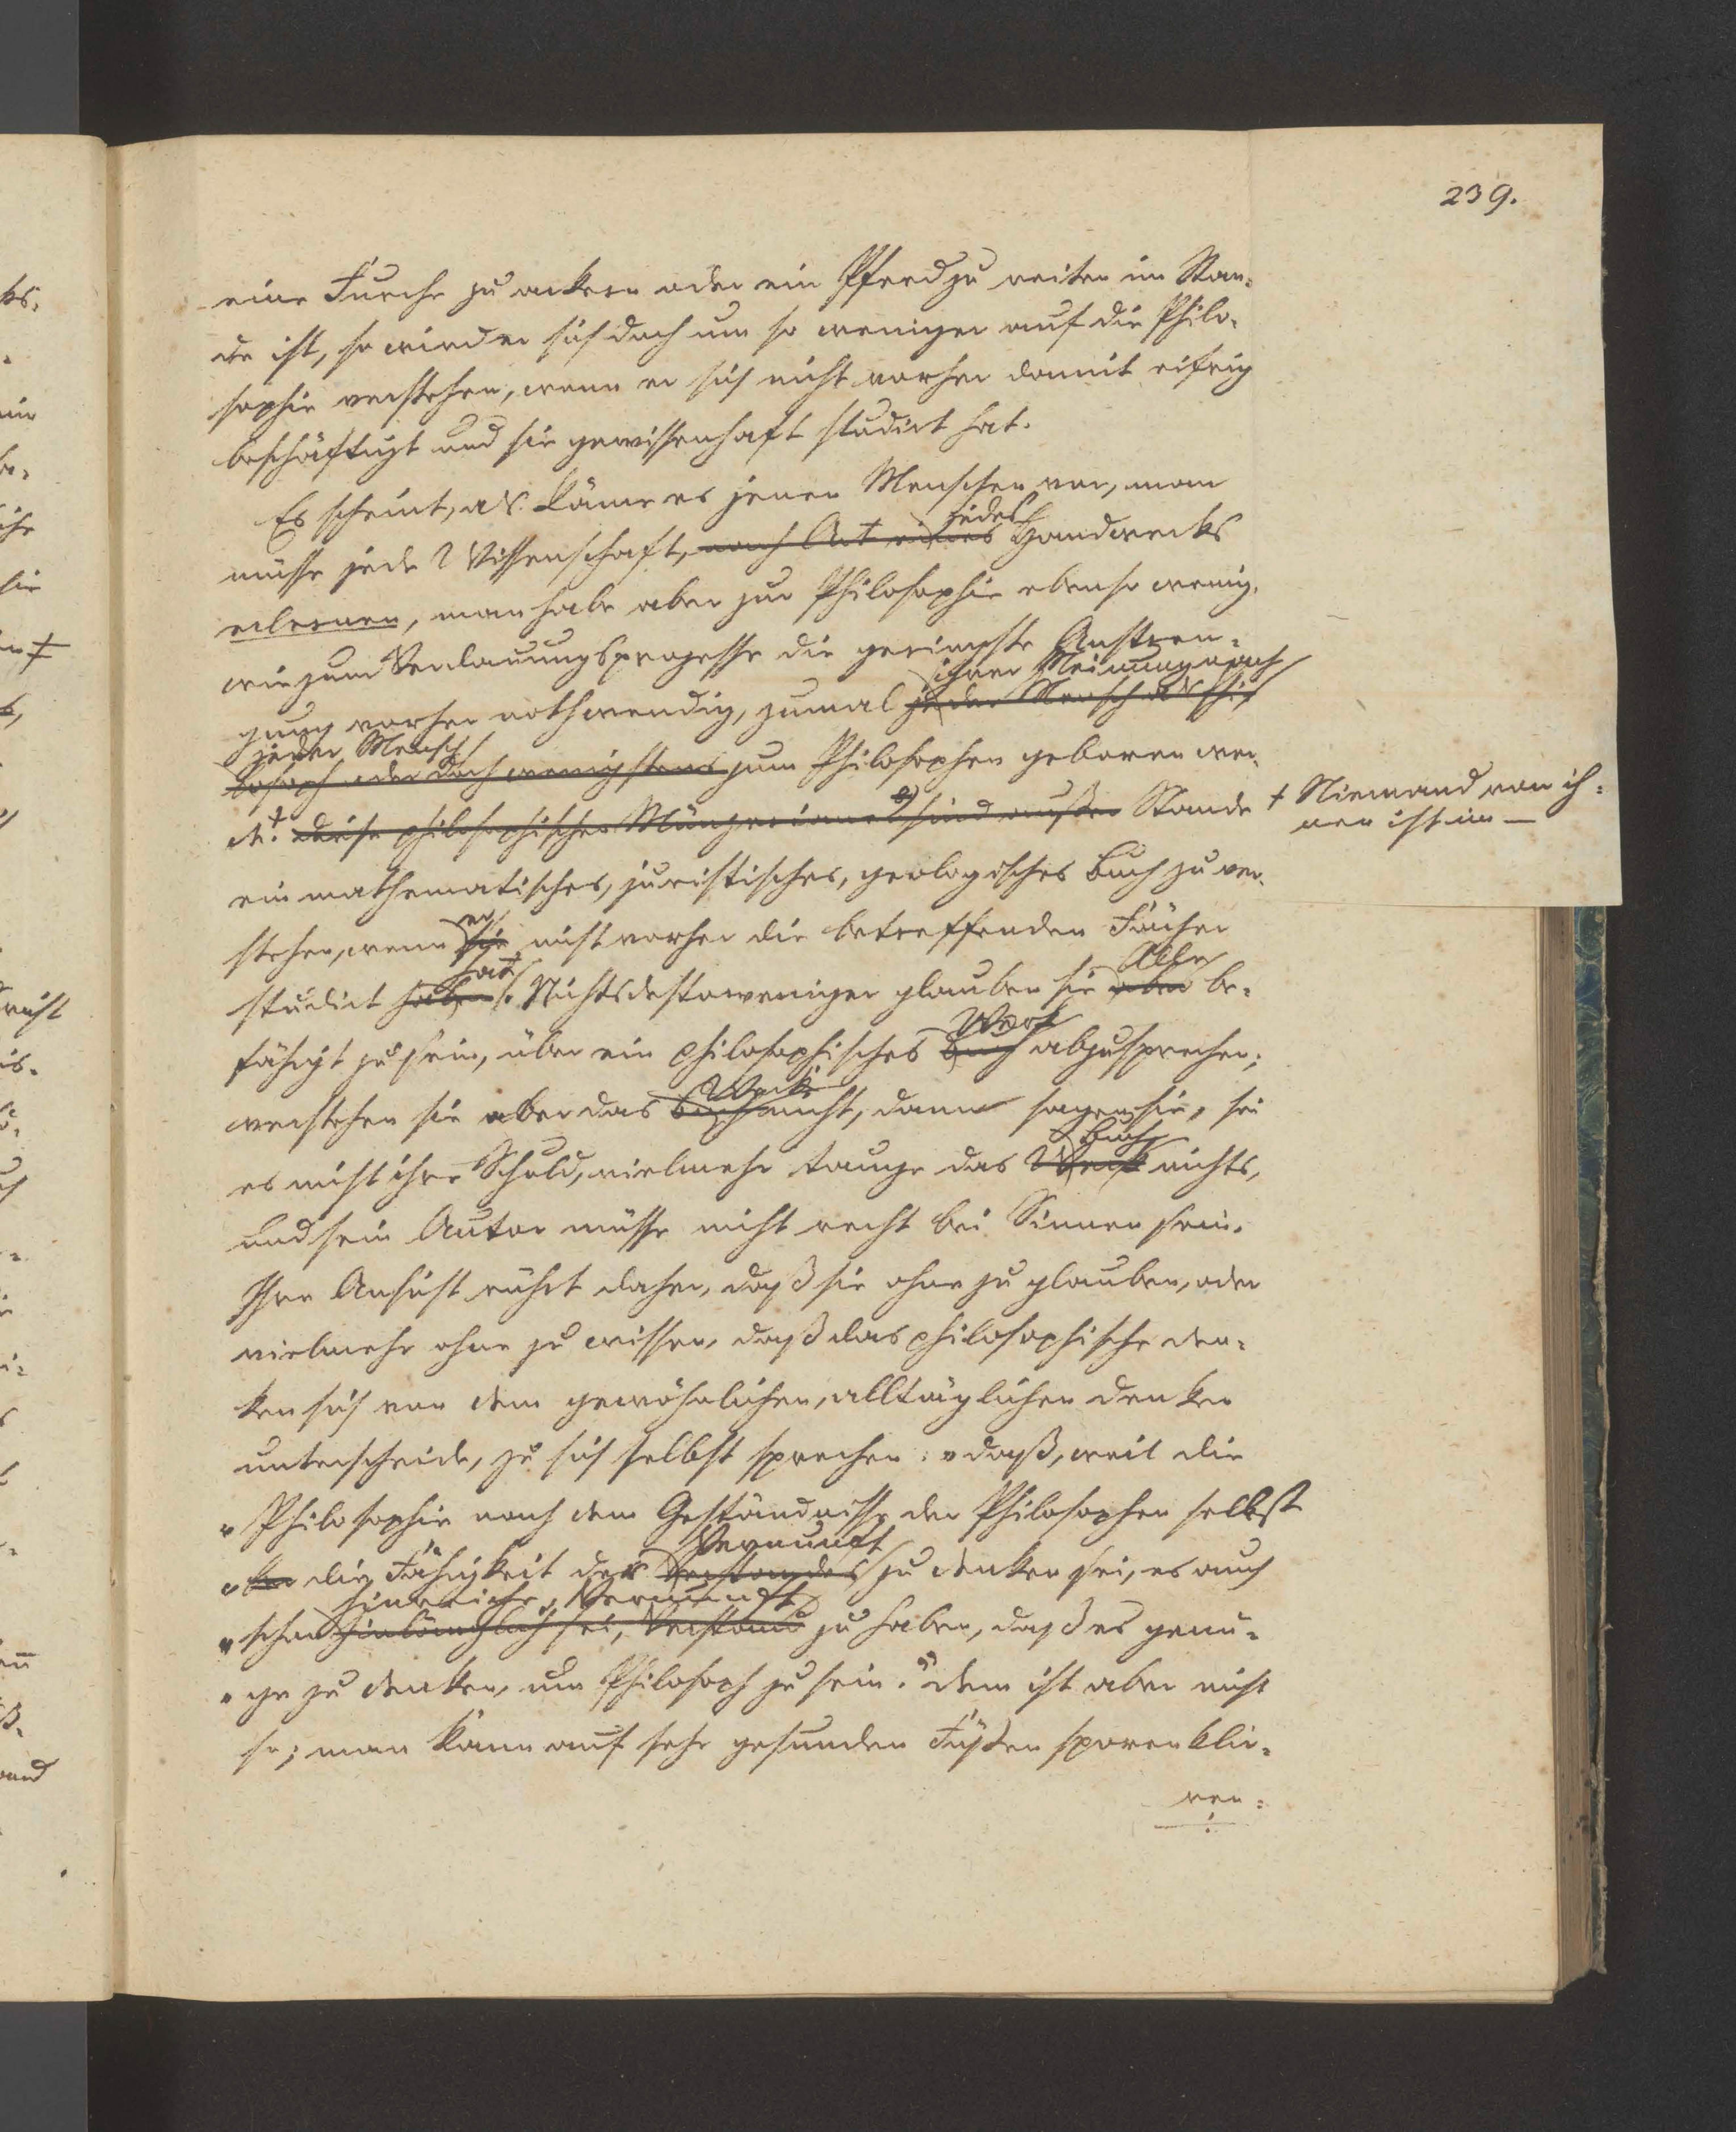 239.
eine Furche zu ackern oder ein Pferd zu reiten im Stan-
de ist, so wird er sich doch um so weniger auf die Philo-
sophie verstehen, wenn er sich nicht vorher damit eifrig
beschäftigt und sie gewissenhaft studirt hat.
Es scheint, als käme es jenen Menschen vor, man
jedes
müsse jede Wissenschaft, nach Art eines Handwerks
erlernen, man habe aber zur Philosophie ebenso wenig,
wie zum Verdauungsprozesse die geringste Anstren-
ihrer Meinung nach
gung vorher nothwendig, zumal jeder Mensch als Phi
jeder Mensch
losoph oder doch wenigstens zum Philosophen geboren wer-
de. † diese philosophischen sind außer Stande
† Niemand von ih-
nen ist im —
ein mathematisches, juristisches, geologisches Buch zu ver-
er
stehen, wenn sie nicht vorher die betreffenden Fächer
hat
Alle
studirt haben. Nichtsdestoweniger glauben sie aber be-
Werk
fähigt zu sein, über ein philosophisches Buch abzusprechen;
Werk
verstehen sie aber das Buch nicht, dann sagen sie, sei
Buch
es nicht ihre Schuld, vielmehr tauge das Werk nichts,
und sein Autor müsse nicht recht bei Sinnen sein.
Ihre Ansicht rührt daher, daß sie ohne zu glauben, oder
vielmehr ohne zu wissen, daß das philosophische Den-
ken sich von dem gewöhnlichen, alltäglichen Denken
unterscheide, zu sich selbst sprechen: „daß, weil die
„Philosophie nach dem Geständnisse der Philosophen selbst
Vernunft
„ die Fähigkeit der Verstandes zu denken sei, es auch
hinreiche, Vernunft
„schon hinlänglich sei, Verstand zu haben, daß es genü-
„ge zu denken, um Philosoph zu sein.“ Dem ist aber nicht
so; man kann auf sehr gesunden Füßen sporenklir-
ren-